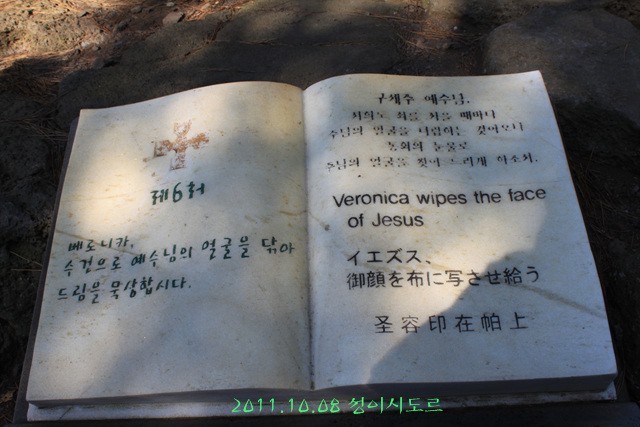 제6처
베로니카,
수건으로 예수님의 얼굴을 닦아
드림을 묵상합시다.
구세주 예수님,
저희도 죄를 지을 때마다
주님의 얼굴을 더럽히는 것이오니
통회의 눈물로
주님의 얼굴을 씻어 드리게 하소서.
Veronica wipes the face
of Jesus
イエズス、
御顔を布に写させ給う
圣容印在帕上
2011.10.08 성이시도르